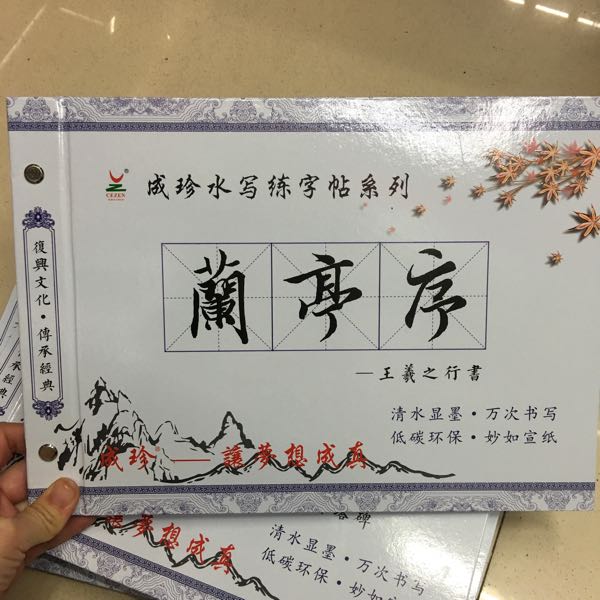 CEZEN
成珍水写练字帖系列
復興文化·傳承經典
蘭亭序
—王羲之行書
清水显墨·万次书写
低碳环保·妙如宣纸
成珍®——讓夢想成真
承經典
碑
讓夢想成真
清水显墨·万次书写
低碳环保·妙如宣